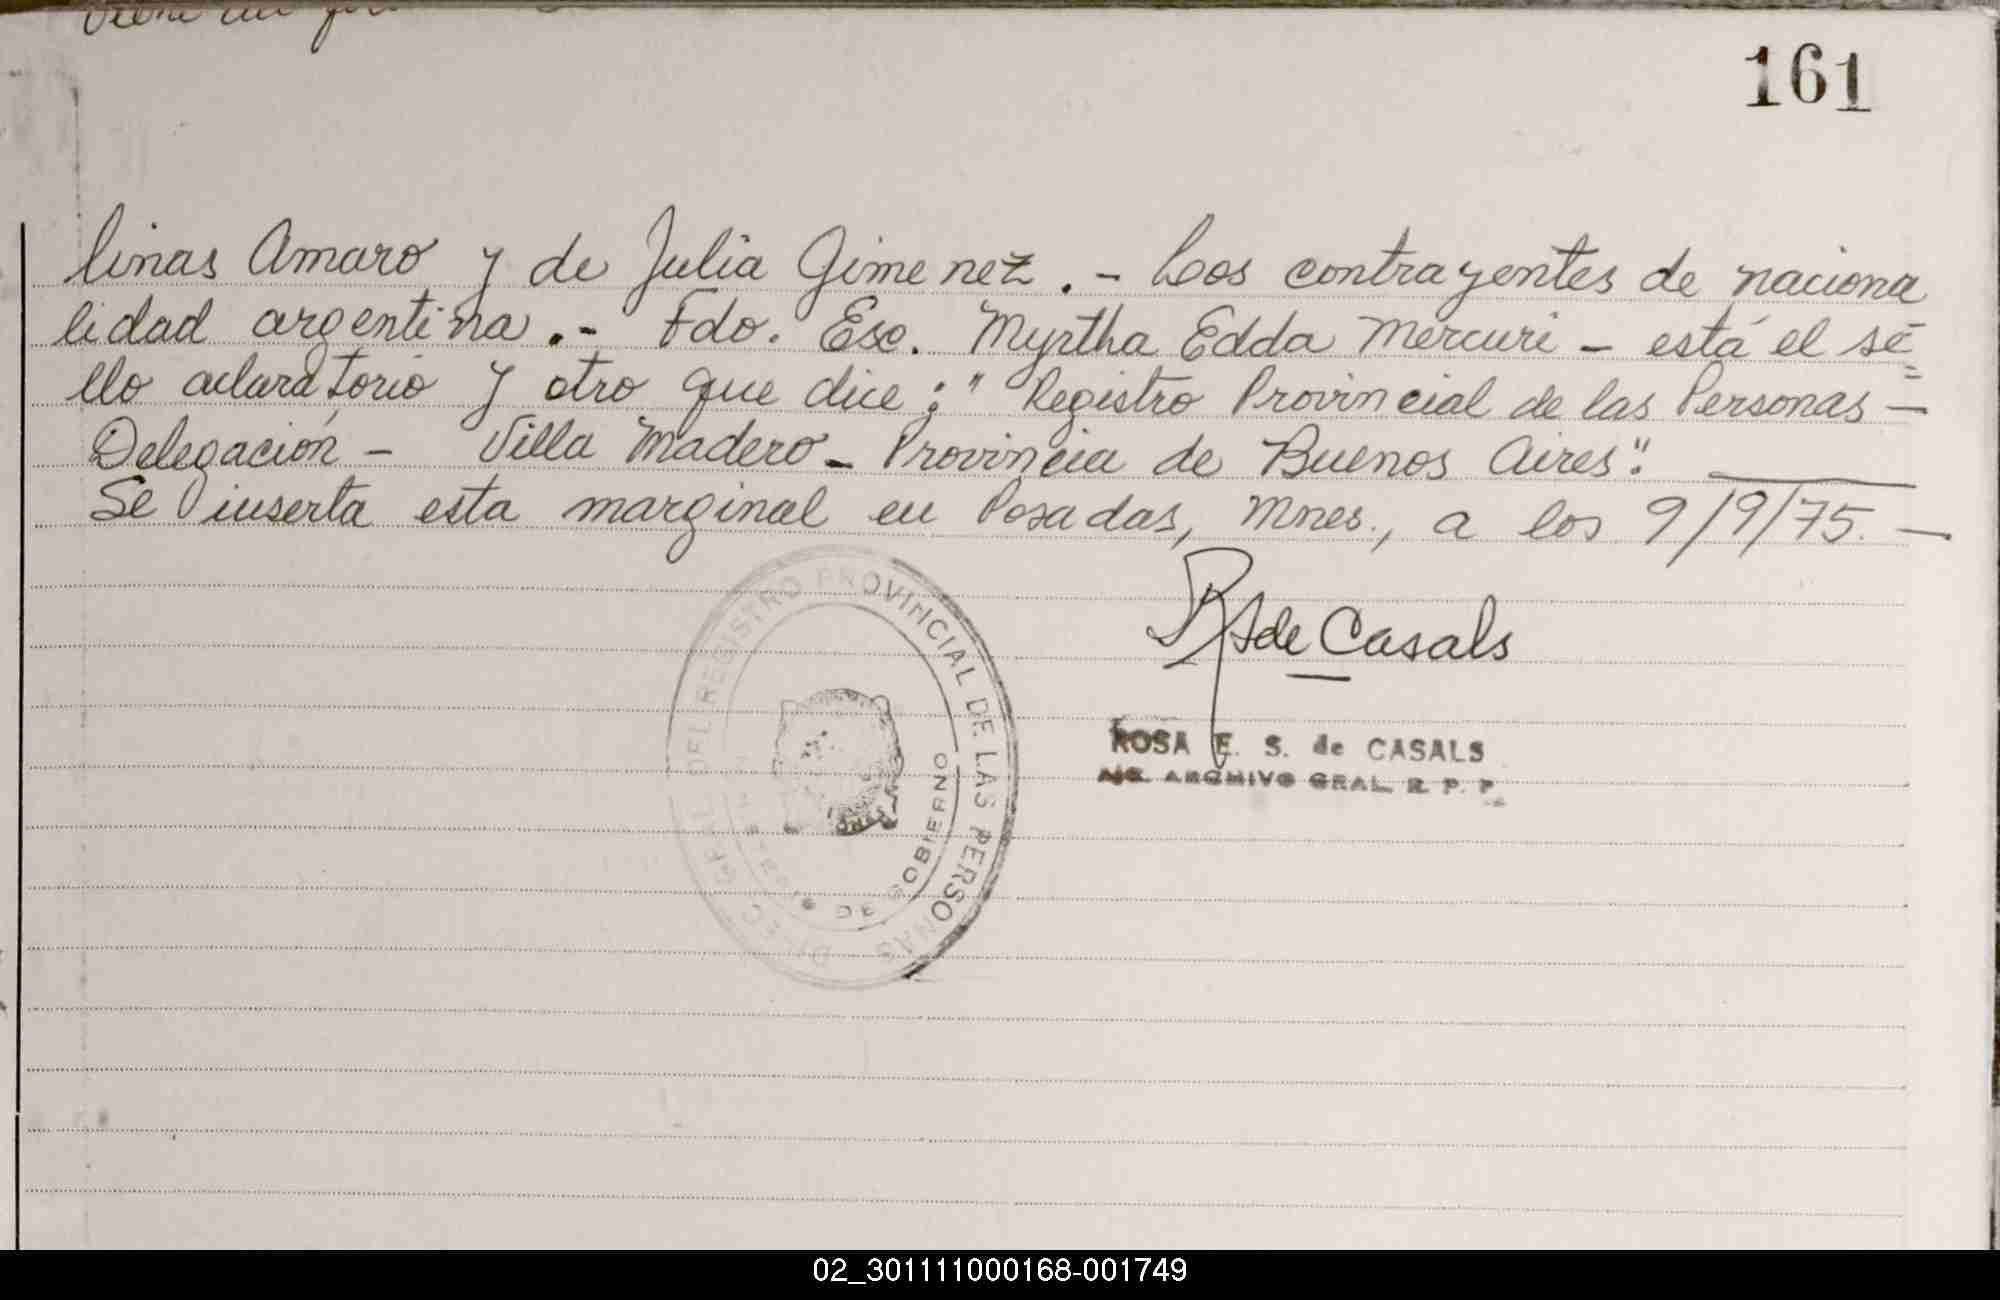 161
linas Amaro y de Julia Gimenez.- Los contrayentes de naciona
lidad argentina.- Fdo. Esc. Myrtha Edda Mercuri - está el se=
llo aclaratorio y otro que dice: "Registro Provincial de las Personas -
Delegación - Villa Madero - Provincia de Buenos Aires".
Se inserta esta marginal en Posadas, Mnes., a los 9/9/75.-
de Casals
REGISTRO PROVINCIAL DE LAS PERSONAS
GOBIERNO
ROSA E. S. de CASALS
ARCHIVO GRAL. R. P. P.
02_301111000168-001749